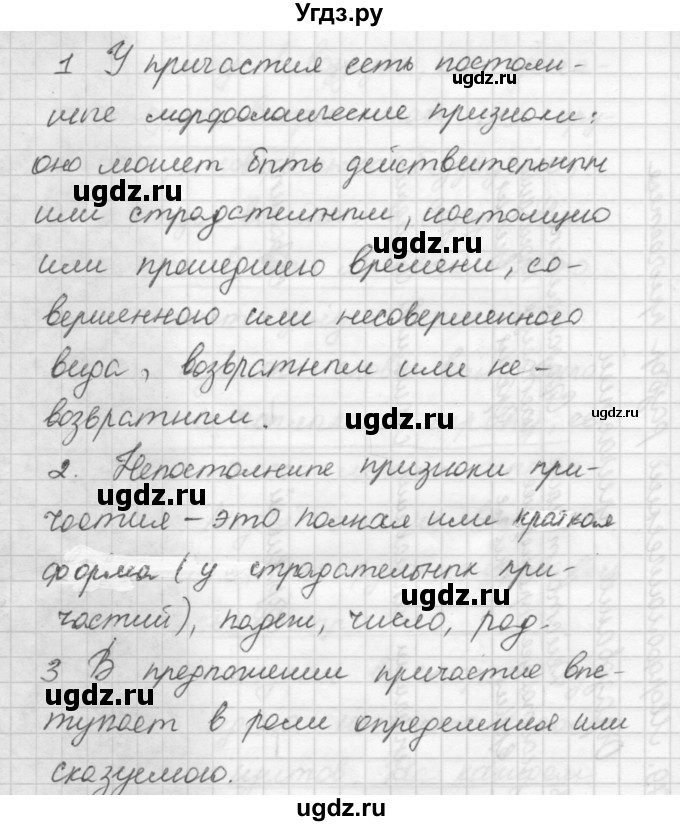 Угдз.ру
1 У причастия есть постоян-
ные морфологические признаки:
оно может быть действительным
или страдательным, настоящего
или прошедшего времени, со-
вершенного или несовершенного
вида, возвратным или не-
возвратным.
2. Непостоянные признаки при-
частия – это полная или краткая
форма (у страдательных при-
частий), падеж, число, род.
3 В предложении причастие выс-
тупает в роли определения или
сказуемого.
ugdz.ru
ugdz.ru
ugdz.ru
ugdz.ru
ugdz.ru
ugdz.ru
ugdz.ru
ugdz.ru
ugdz.ru